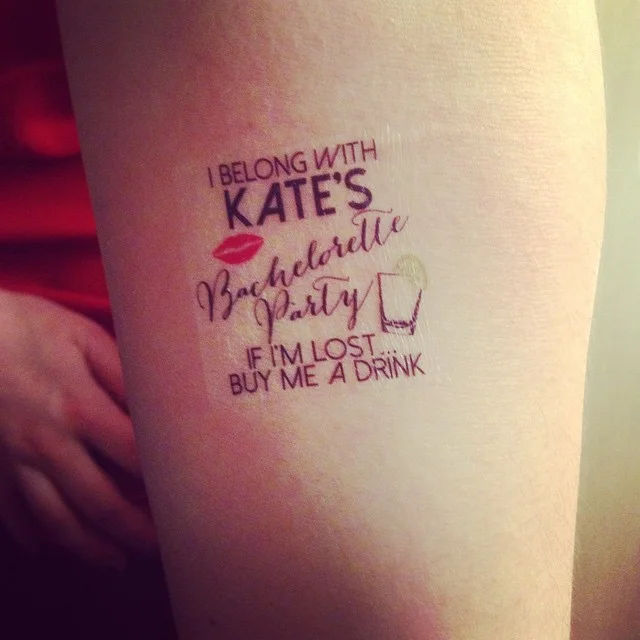 I BELONG WITH
KATE'S
Bachelorette
Party
IF I'M LOST...
BUY ME A DRINK